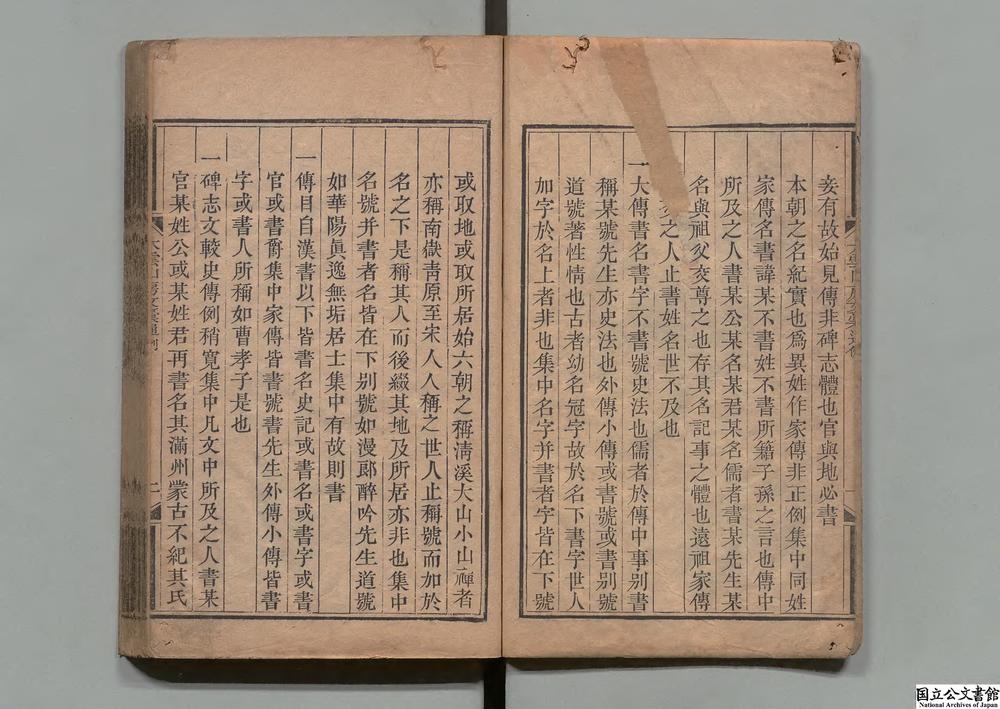 妾有故始見傳非碑志體也官與地必書
本朝之名紀實也爲異姓作家傳非正例集中同姓
家傳名書諱某不書姓不書所籍子孫之言也傳中
所及之人書某公某名某君某名儒者書某先生某
名與祖父亥尊之也存其名記事之體也遠祖家傳
之人止書姓名世不及也
一大傳書名書字不書號史法也儒者於傳中事别書
稱某號先生亦史法也外傳小傳或書號或書别號
道號著性情也古者幼名冠字故於名下書字世人
加字於名上者非也集中名字并書者字皆在下號
或取地或取所居始六朝之稱淸溪大山小山禪者
亦稱南嶽靑原至宋人人稱之世人止稱號而如於
名之下是稱其人而後綴其地及所居亦非也集中
名號并書者名皆在下别號如漫郞醉吟先生道號
如華陽眞逸無垢居士集中有故則書
一傳目自漢書以下皆書名史記或書名或書字或書
官或書爵集中家傳皆書號書先生外傳小傳皆書
字或書人所稱如曹孝子是也
一碑志文較史傳例稍寬集中凡文中所及之人書某
官某姓公或某姓君再書名其滿州蒙古不紀其氏
二
国立公文書館
National Archives of Japan